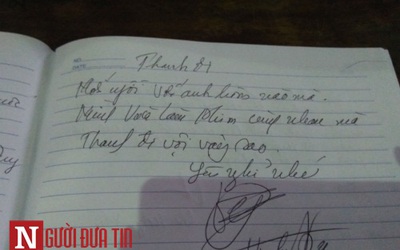 Thanh ơi
Mới ngồi với anh hôm nào mà.
Mình vừa làm phim cùng nhau mà
Thanh ơi vội vàng sao.
Yên nghỉ nhé
NGƯỜI ĐƯA TIN